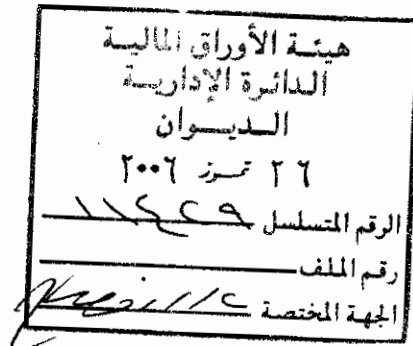 هيئة الأوراق المالية
الدائرة الإدارية
الديوان
٢٦ تموز ٢٠٠٦
الرقم المتسلسل ١١٤٢٩
رقم الملف
الجهة المختصة